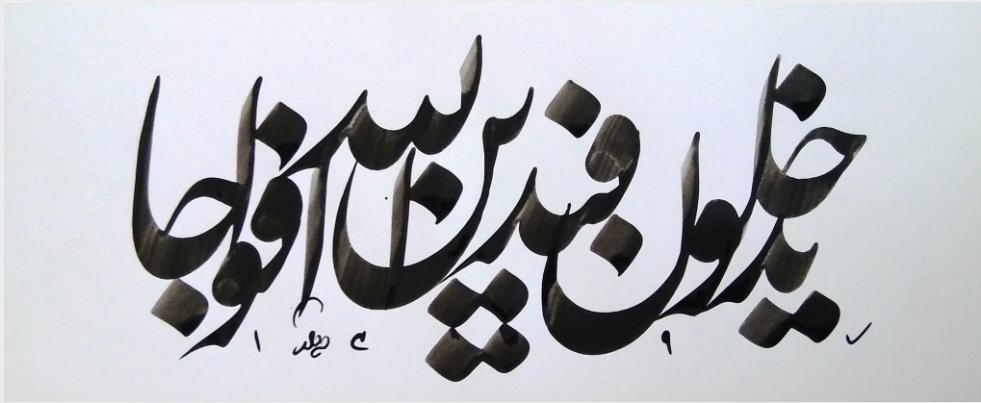 يدخلون في دين الله افواجا